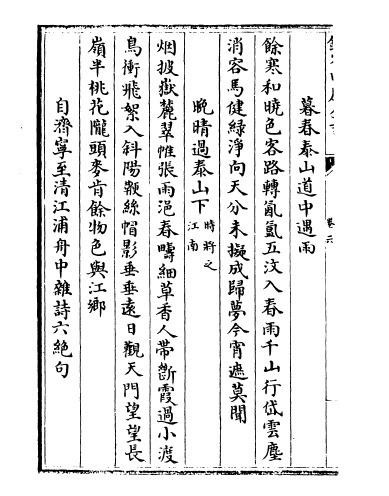 暮春泰山道中遇雨
餘寒和曉色客路轉氤氳五汶入春雨千山行岱雲塵
消客馬健綠淨向天分未擬成歸夢今宵遮莫聞
晩晴過泰山下時將之江南
烟披嶽麓翠帷張雨浥春疇細草香人帶斷霞過小渡
鳥衝飛絮入斜陽鞭絲帽影垂垂遠日觀天門望望長
嶺半桃花隴頭麥肯餘物色與江鄉
自濟寧至清江浦舟中雜詩六絶句